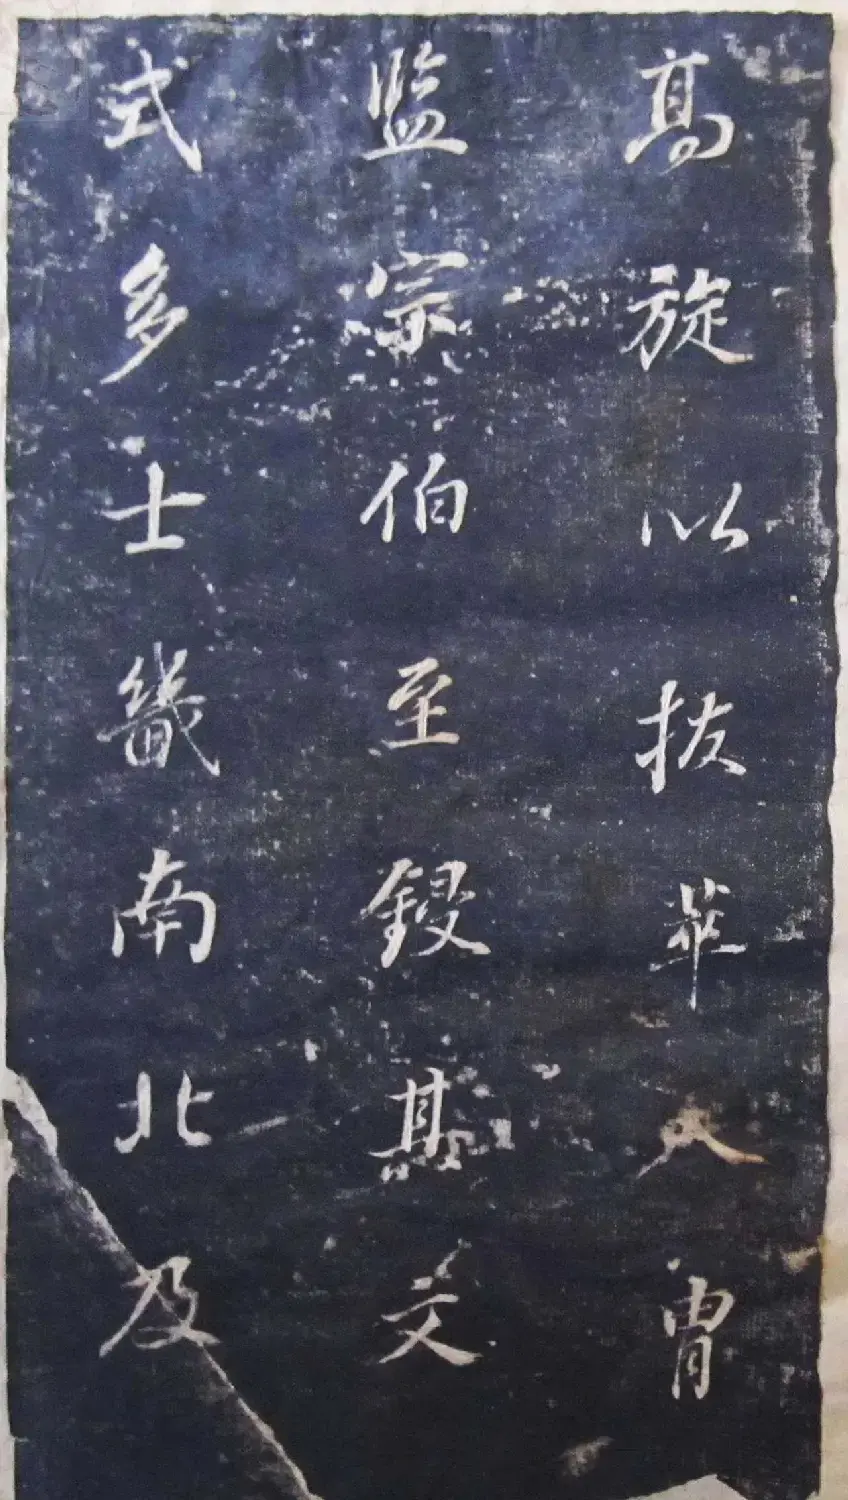 高旋以拔萃入胄
监宗伯至鋟其文
式多士畿南北及